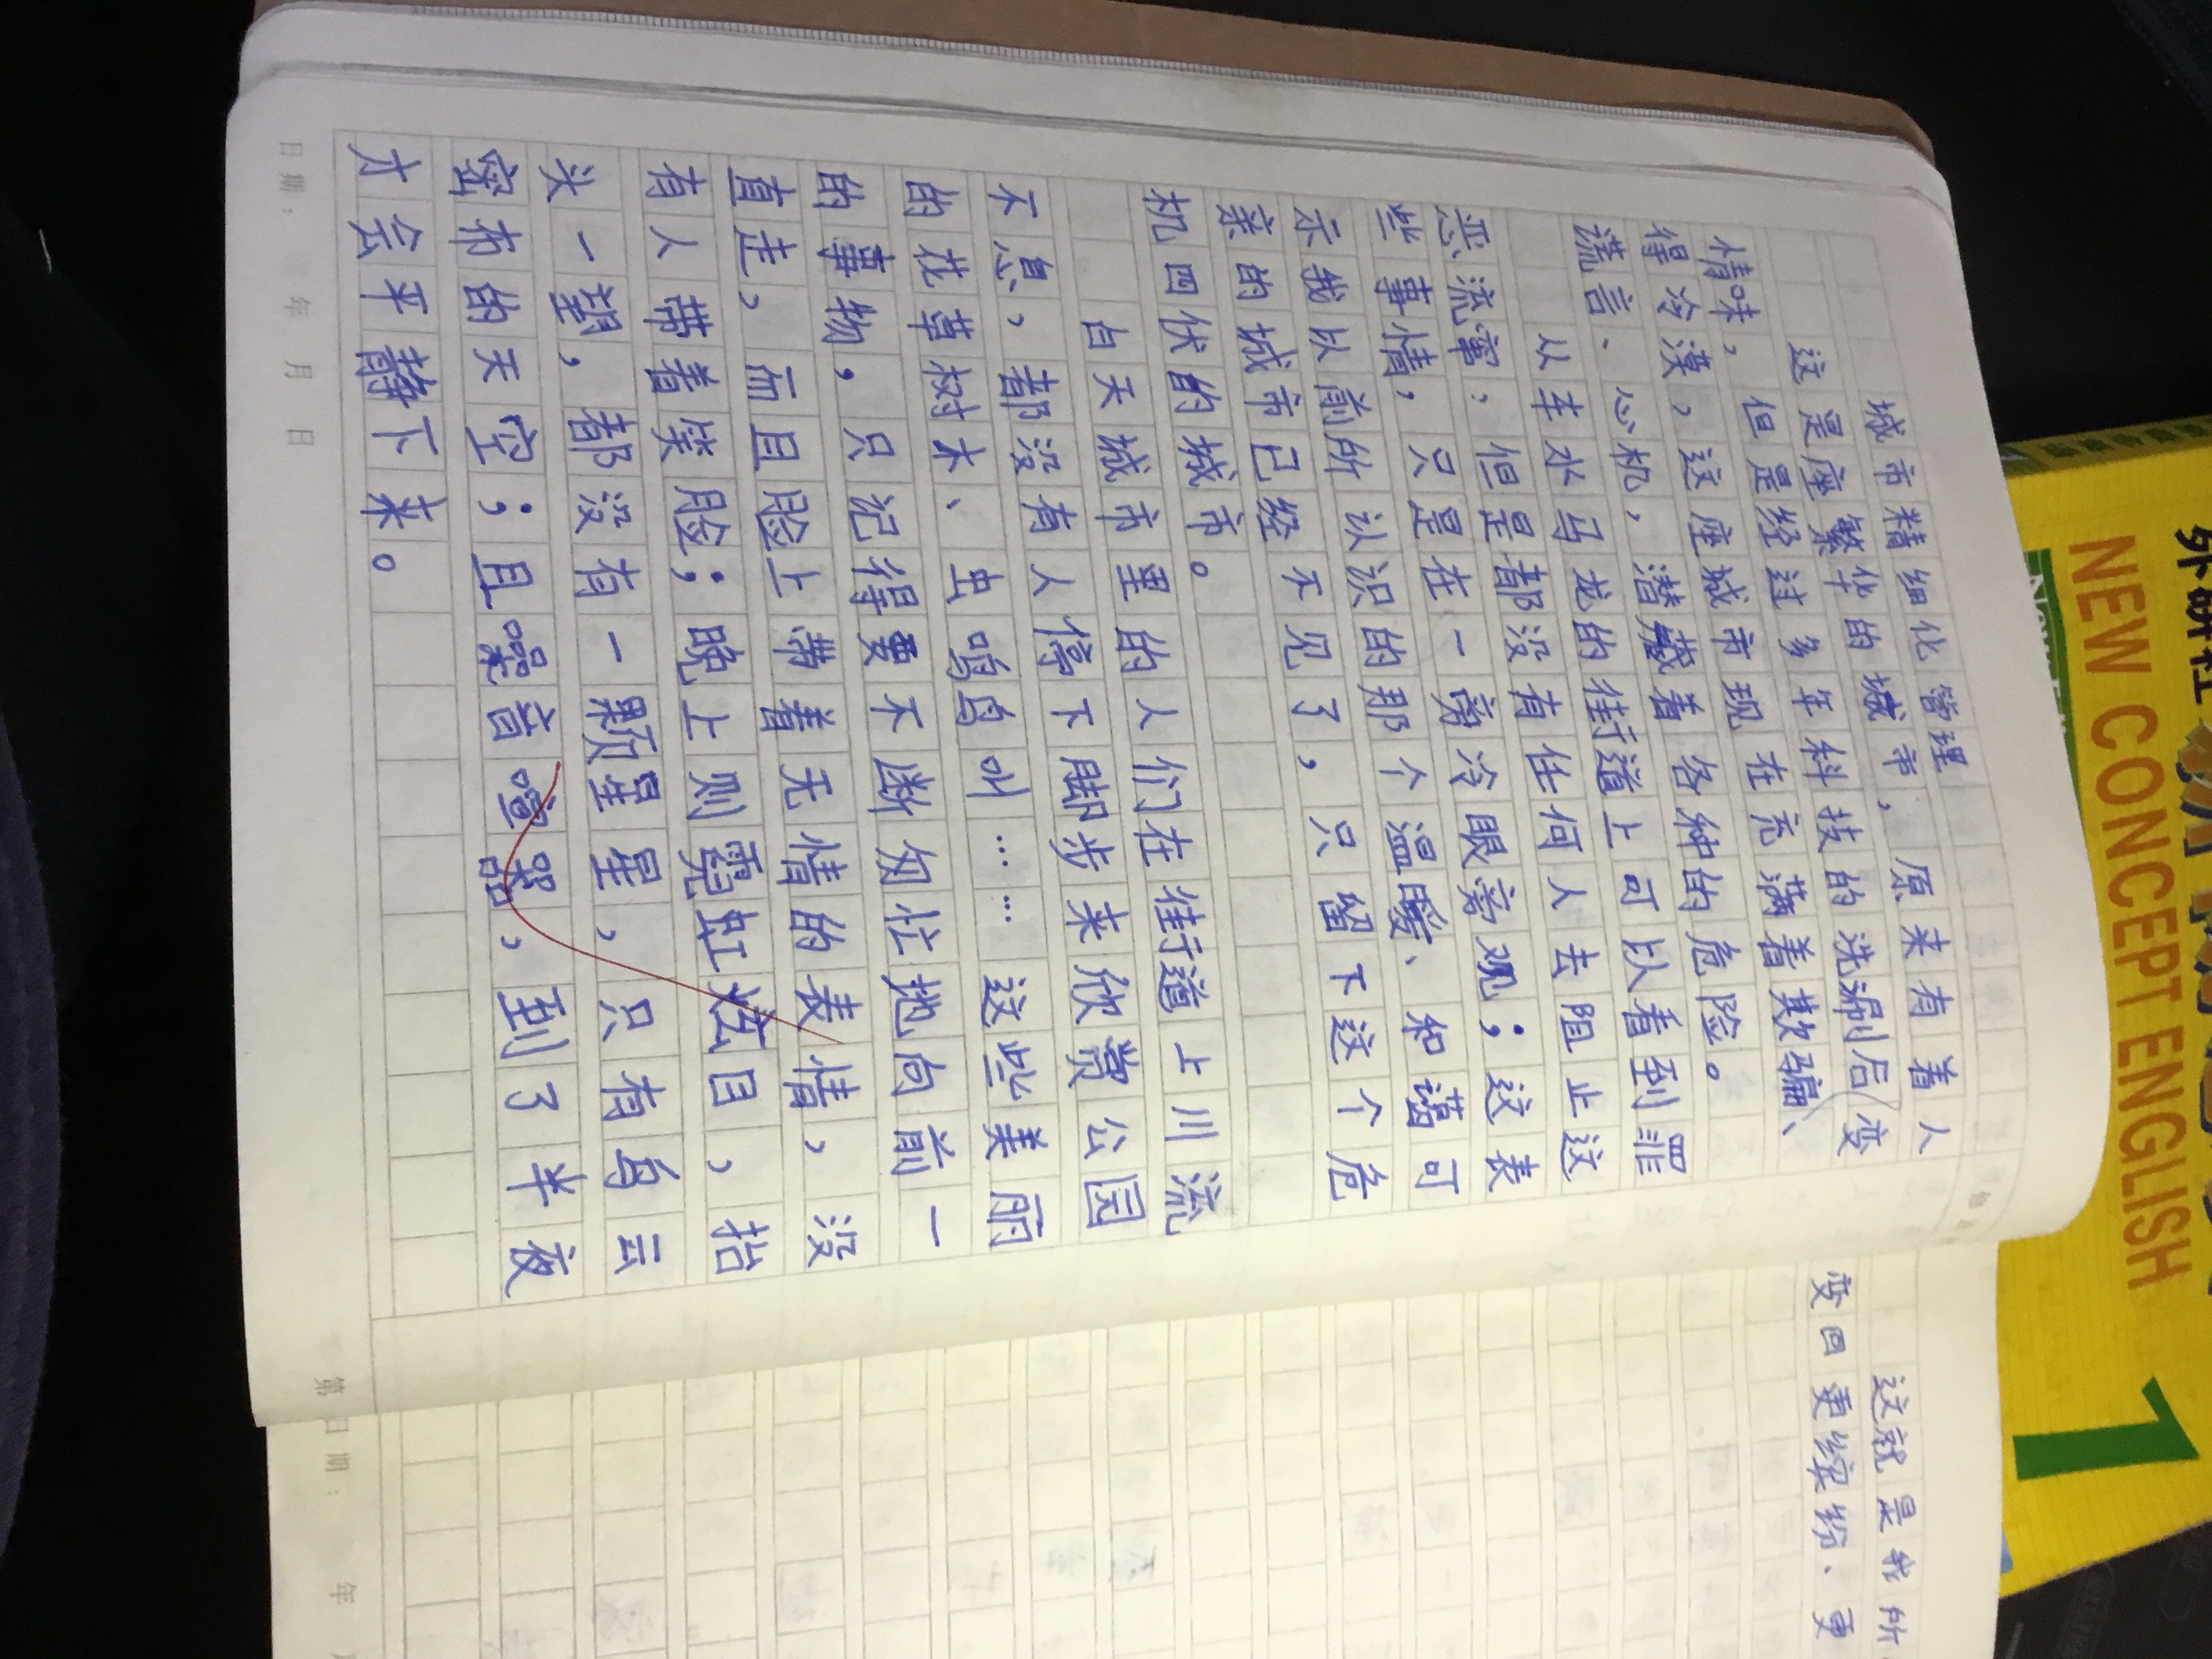 城市精细化管理
这是座繁华的城市，原来有着人
情味，但是经过多年科技的洗涮后变
得冷漠，这座城市现在充满着欺骗、
谎言、心机，潜藏着各种的危险。
从车水马龙的街道上可以看到罪
恶流窜，但是都没有任何人去阻止这
些事情，只是在一旁冷眼旁观；这表
示我以前所认识的那个温暖、和蔼可
亲的城市已经不见了，只留下这个危
机四伏的城市。
白天城市里的人们在街道上川流
不息，都没有人停下脚步来欣赏公园
的花草树木、虫鸣鸟叫……这些美丽
的事物，只记得要不断匆忙地向前一
直走，而且脸上带着无情的表情，没
有人带着笑脸；晚上则霓虹炫目，抬
头一望，都没有一颗星星，只有乌云
密布的天空；且噪音喧嚣，到了半夜
才会平静下来。
日期： 年 月 日
这就是我所
变回更缤纷、更
第
日期： 年
外研社
NEW CONCEPT ENGLISH
1